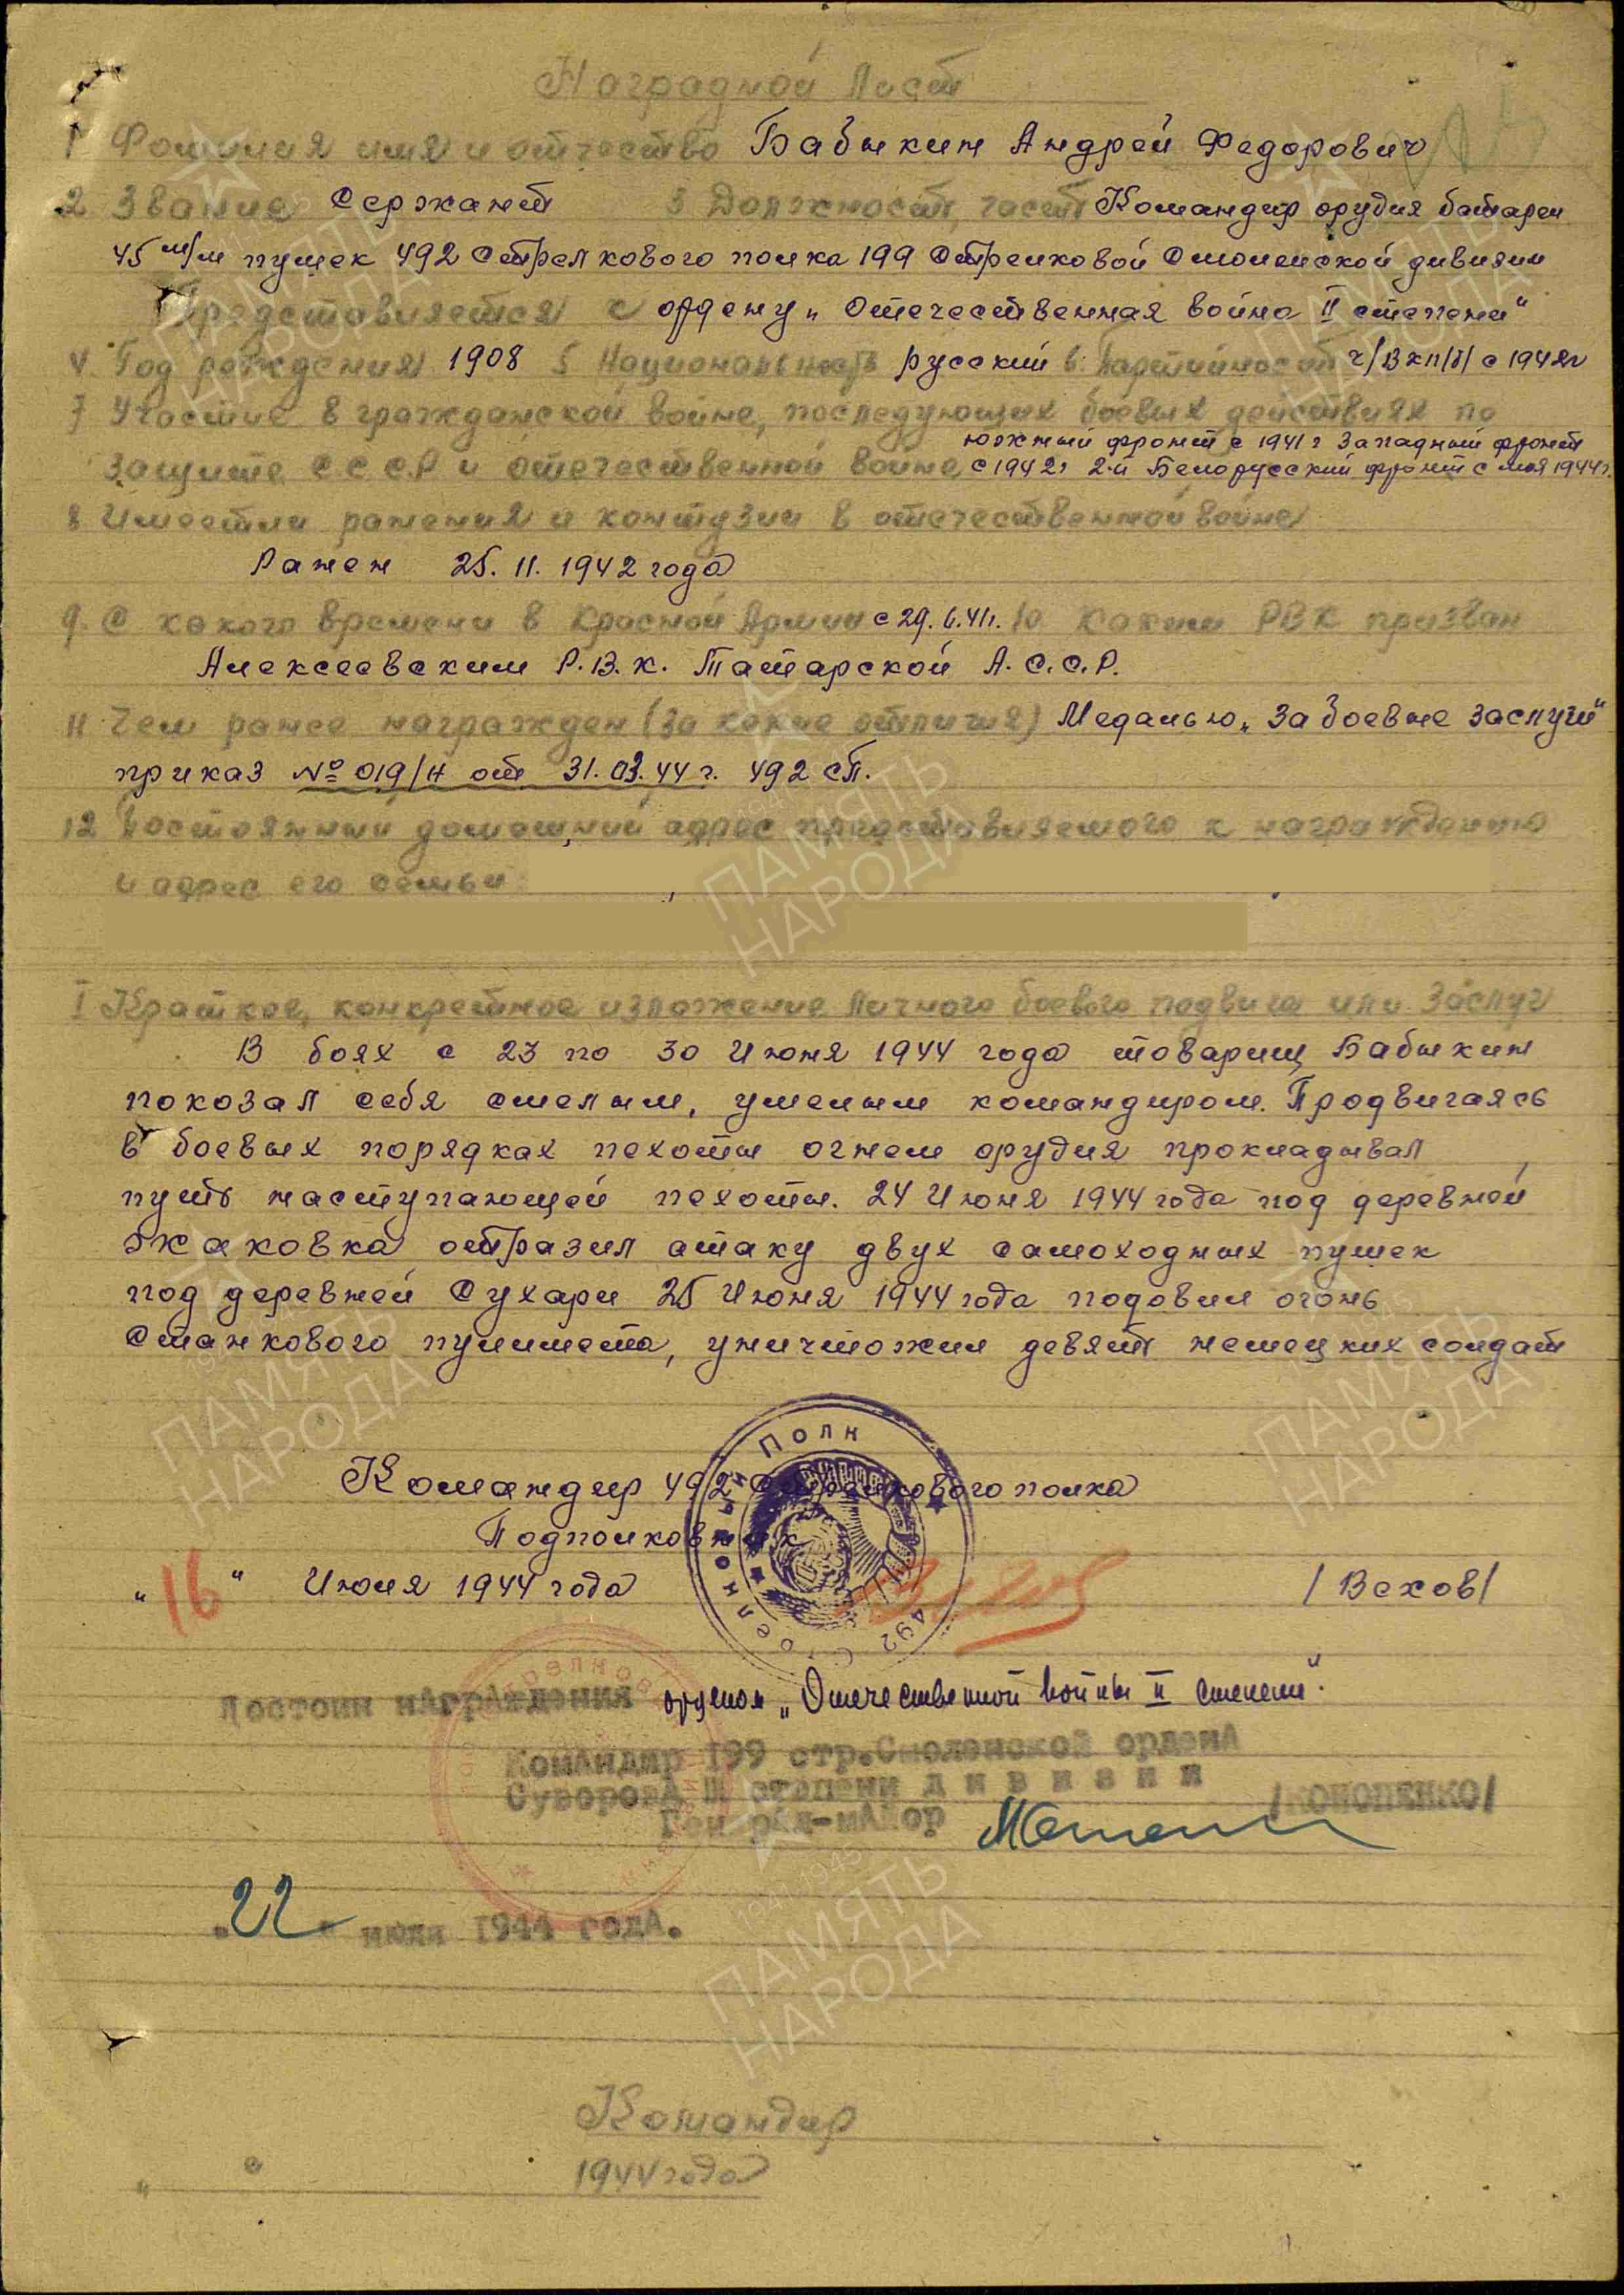 Наградной Лист
1 Фамилия имя и отчество Бабыкин Андрей Федорович
2 Звание Сержант 3 Должность, часть Командир орудия батареи
45 м/м пушек 492 Стрелкового полка 199 Стрелковой Смоленской дивизии
Представляется к ордену „Отечественная война II степени“
4 Год рождения 1908 5 Национальность русский 6 Партийность ч/ВКП/б/ с 1942г
7 Участие в гражданской войне, последующих боевых действиях по
защите СССР и отечественной войне Южный фронт с 1941г Западный фронт
с 1942г 2-й Белорусский фронт с мая 1944г.
8 Имеет ли ранения и контузии в отечественной войне
Ранен 25.11.1942 года
9. С какого времени в Красной Армии с 29.6.41г. 10 Каким РВК призван
Алексеевским Р.В.К. Татарской А.С.С.Р.
11 Чем ранее награжден (за какие отличия) Медалью „За боевые заслуги“
приказ № 019/н от 31.03.44 г. 492 сп.
12 Постоянный домашний адрес представляемого к награждению
и адрес его семьи
I Краткое, конкретное изложение личного боевого подвига или заслуг
В боях с 23 по 30 Июня 1944 года товарищ Бабыкин
показал себя смелым, умелым командиром. Продвигаясь
в боевых порядках пехоты огнем орудия прокладывал
путь наступающей пехоты. 24 Июня 1944 года под деревней
отразил атаку двух самоходных пушек
под деревней Сухари 25 Июня 1944 года подовил огонь
станкового пулимета, уничтожил девять немецких солдат
Командир 492 Стрелкового полка
Подполковник
„16“ Июля 1944 года /Вехов/
Стрелковый Полк 492
Достоин награждения орденом „Отечественной войны II степени“.
Командир 199 стр.Смоленской ордена
Суворова III степени дивизии
Генерал-майор /КОНОПЕНКО/
„22“ июля 1944 года.
Командир
„ “ 1944 года
ПАМЯТЬ НАРОДА
1941-1945